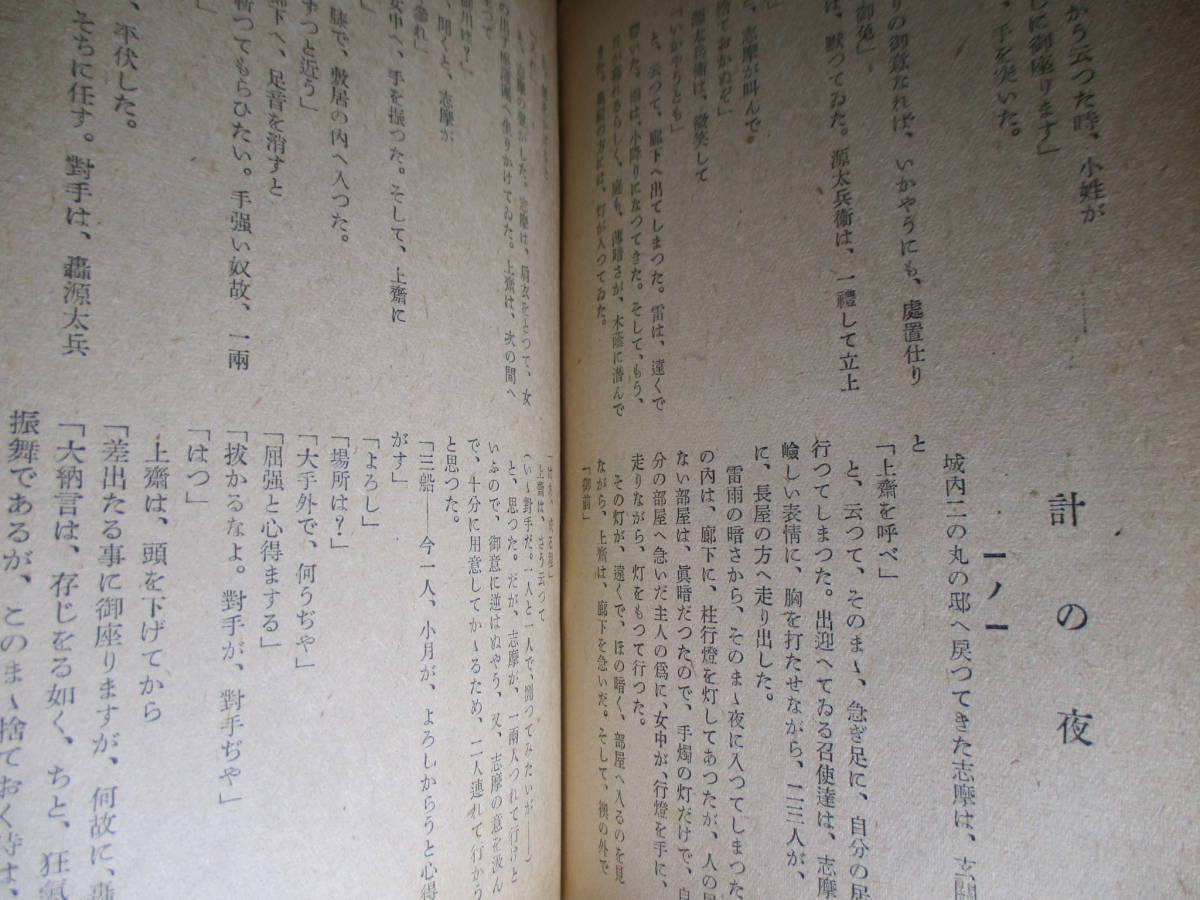 かう云つた時、小姓が
に御座ります」
、手を突いた。
りの御意なれば、いかやうにも、處置仕り
御免」
は、默つてゐた。源太兵衞は、一禮して立上
、志摩が叫んで
捨ておかぬぞ」
源太兵衞は、微笑して
「いかやうとも」
と、云つて、廊下へ出てしまつた。雷は、遠くで
響いた。雨は、小降りになつてきた。そして、もう、
日が暮れるらしく、庭も、薄暗さが、木蔭に潜んで
きた。表座の方には、灯が入つてゐた。
計の夜
一ノ一
城内二の丸の邸へ戻つてきた志摩は、玄關
と
「上齋を呼べ」
と、云つて、そのまゝ、急ぎ足に、自分の居
行つてしまつた。出迎へてゐる召使達は、志摩
嶮しい表情に、胸を打たせながら、二三人が、
に、長屋の方へ走り出した。
雷雨の暗さから、そのまゝ夜に入つてしまつた
の内は、廊下に、柱行燈を灯してあつたが、人の居
ない部屋は、眞暗だつたので、手燭の灯だけで、自
分の部屋へ急いだ主人の爲に、女中が、行燈を手に、
走りながら、灯をもつて行つた。
その灯が、遠くで、ほの暗く、部屋へ入るのを見
ながら、上齋は、廊下を急いだ。そして、襖の外で
「御前」
志摩の聲がした。志摩は、肩衣をとつて、女
の出す座蒲團へ坐りかけてゐた。上齋は、次の間へ
、聞くと、志摩が
參れ」
女中へ、手を振つた。そして、上齋に
膝で、敷居の内へ入つた。
ずつと近う」
廊下へ、足音を消すと
斬つてもらひたい。手强い奴故、一兩
、平伏した。
そちに任す。對手は、轟源太兵
上齋は、さう云つて
(いゝ對手だ。一人と一人で、闘つてみたいが――)
と、思つた。だが、志摩が、一兩人つれて行けと
いふので、御意に逆はぬやう、又、志摩の意を汲ん
で、十分に用意してかゝるため、二人連れて行かう
と思つた。
「三船――今一人、小月が、よろしからうと心得
がす」
「よろし」
「場所は?」
「大手外で、何うぢや」
「屈强と心得まする」
「拔かるなよ。對手が、對手ぢや」
「はつ」
上齋は、頭を下げてから
「差出たる事に御座りますが、何故に、轟
「大納言は、存じをる如く、ちと、狂氣
振舞であるが、このまゝ捨ておく時は、